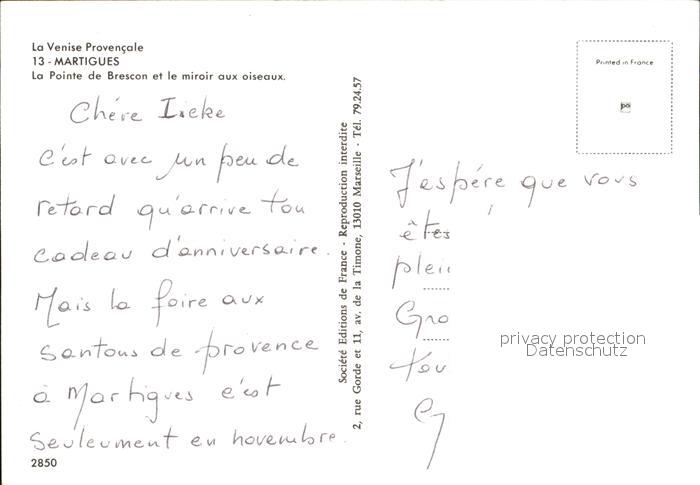 La Venise Provençale
13 - MARTIGUES
La Pointe de Brescon et le miroir aux oiseaux.
Chére Lieke
c'est avec un peu de
retard qu'arrive ton
cadeau d'anniversaire.
Mais la foire aux
santons de provence
à Martigues c'est
Seuleument en novembre.
2850
Société Editions de France - Reproduction interdite
2, rue Gorde et 11, av. de la Timone, 13010 Marseille - Tél. 79.24.57
Printed in France
J'espére que vous
êtes
plei
Gro
tou
privacy protection
Datenschutz